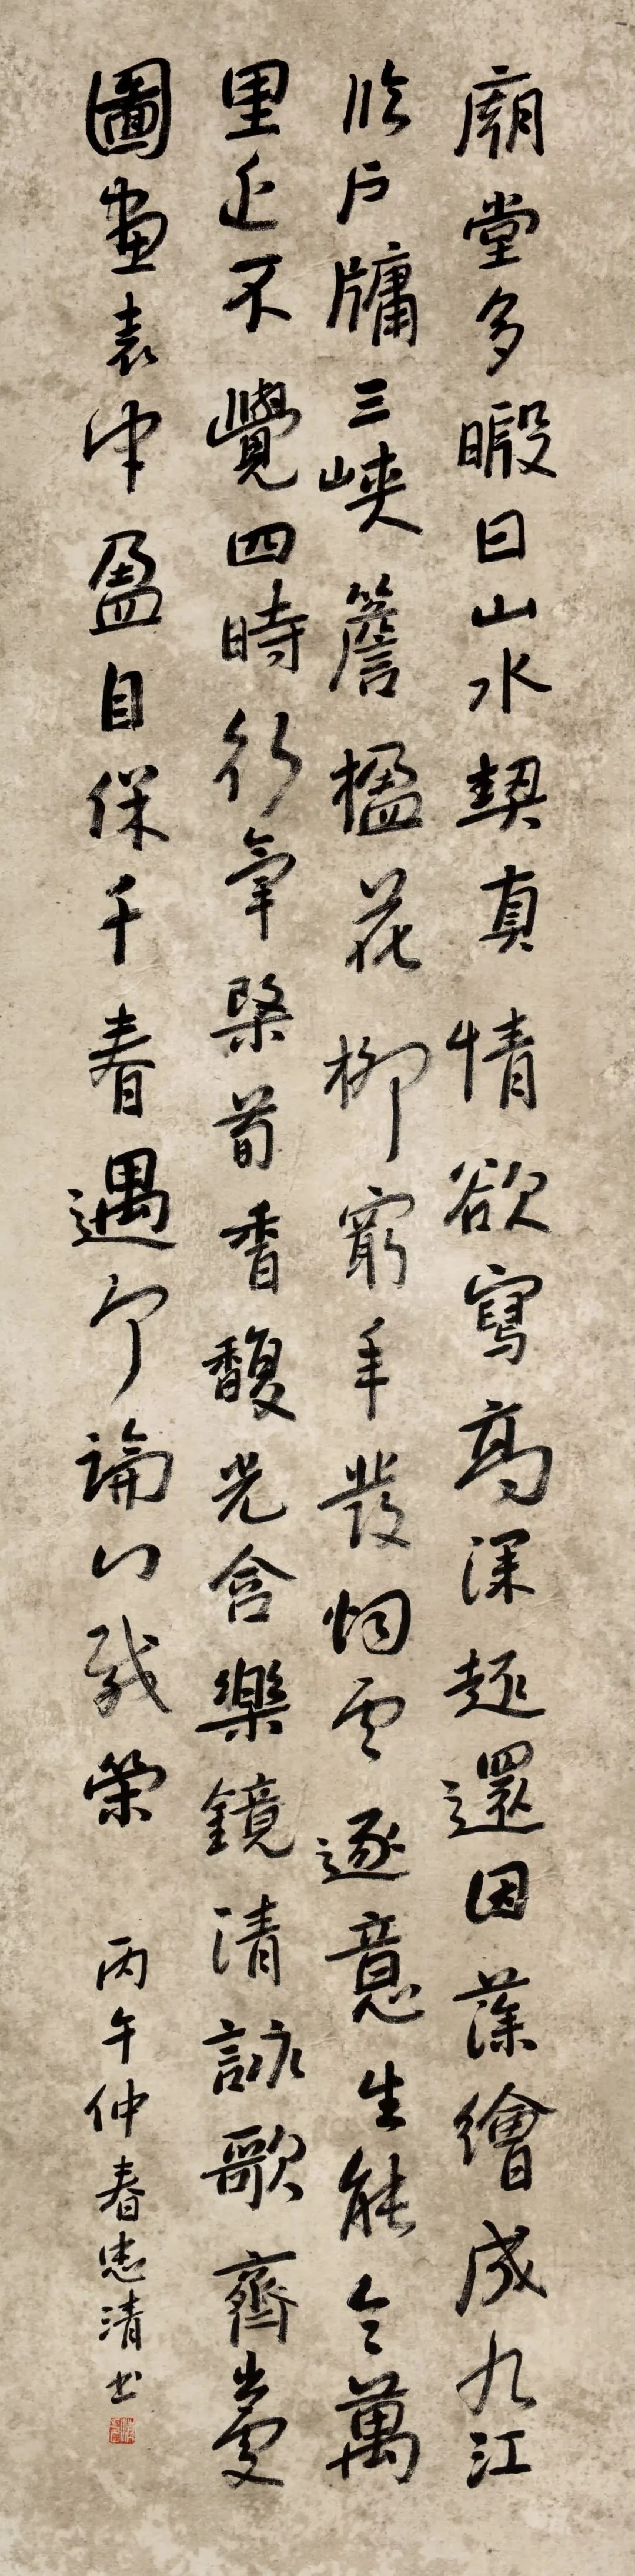 廟堂多暇日山水契真情欲寫高深趣還因藻繪成九江
臨戶牖三峽簷楹花柳窮年發烟雲逐意生能令萬
里近不覺四時行氣染荀香馥光含樂鏡清詠歌齊出處
圖畫表冲盈自保千春遇何論八載榮 丙午仲春忠清书